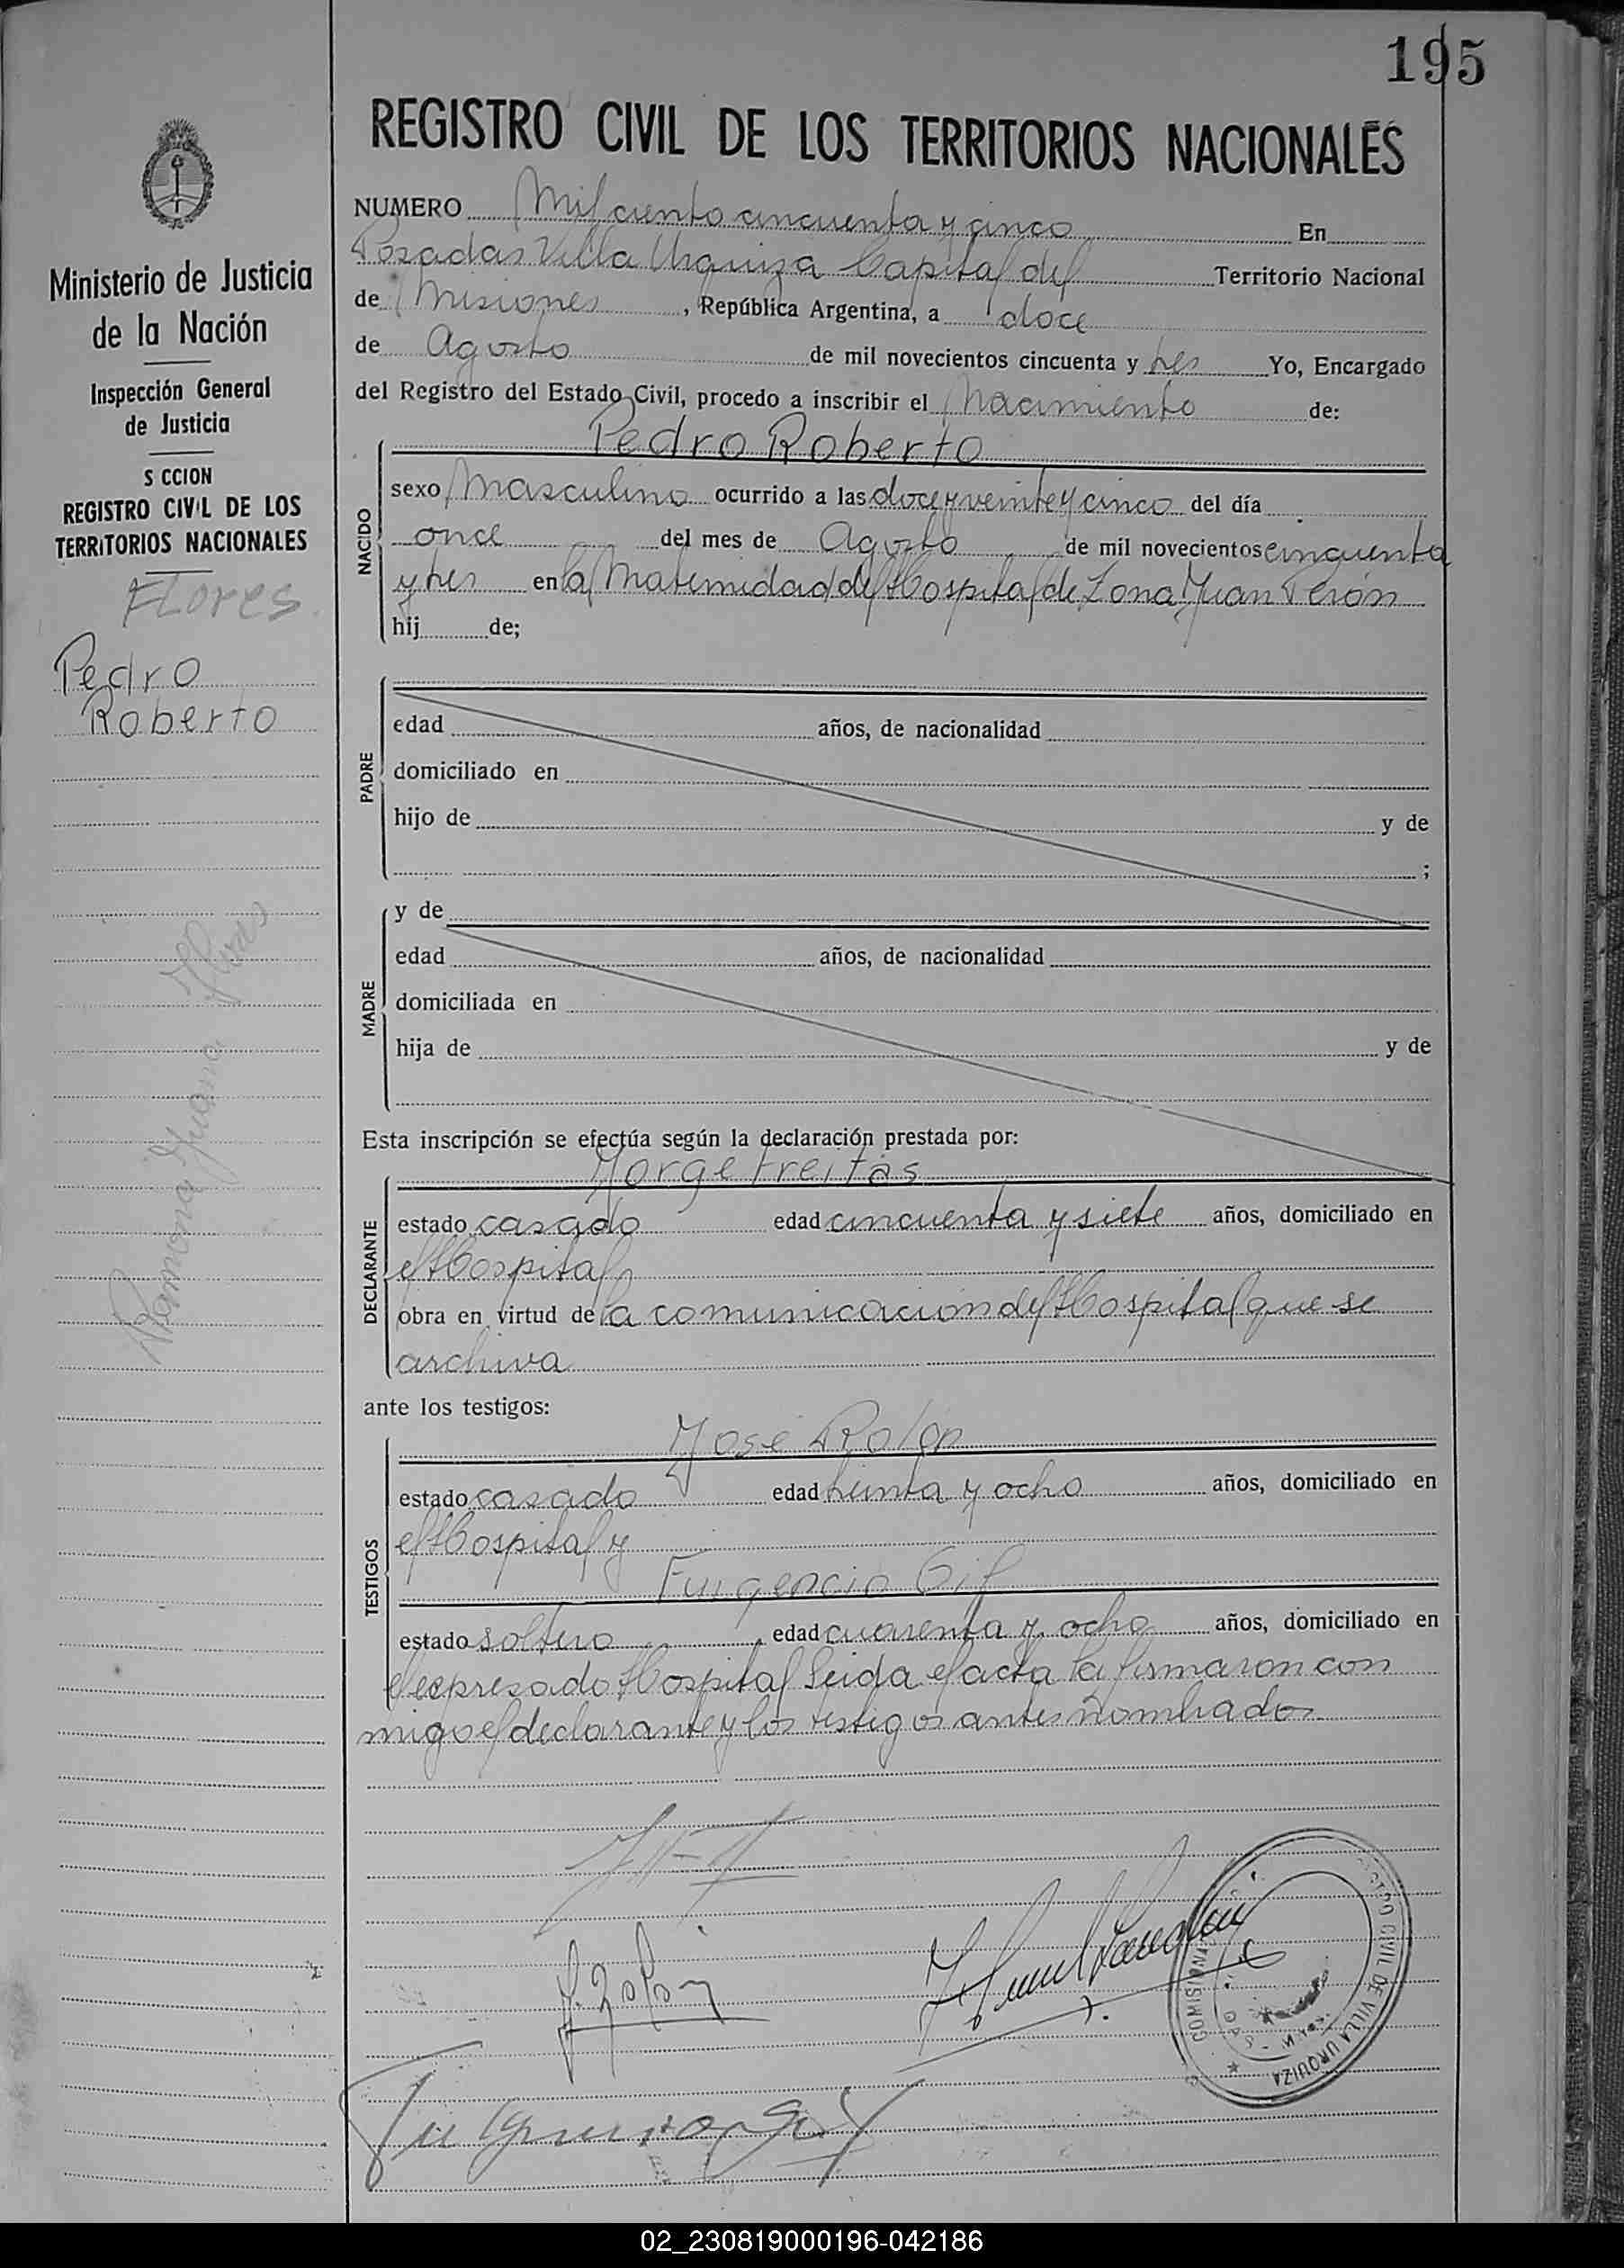 195
REGISTRO CIVIL DE LOS TERRITORIOS NACIONALES
Ministerio de Justicia
de la Nación
Inspección General
de Justicia
S CCION
REGISTRO CIVIL DE LOS
TERRITORIOS NACIONALES
FLores
Pedro
Roberto
Ramona Juana Flores
NUMERO Mil ciento cincuenta y cinco En
Posadas Villa Urquiza Capital del Territorio Nacional
de Misiones, República Argentina, a doce
de Agosto de mil novecientos cincuenta y tres Yo, Encargado
del Registro del Estado Civil, procedo a inscribir el Nacimiento de:
NACIDO
Pedro Roberto
sexo Masculino ocurrido a las doce y veinte y cinco del día
once del mes de Agosto de mil novecientos cincuenta
y tres en la Maternidad del Hospital de Zona Juan Perón
hij de;
PADRE
edad años, de nacionalidad
domiciliado en
hijo de y de
;
MADRE
y de
edad años, de nacionalidad
domiciliada en
hija de y de
Esta inscripción se efectúa según la declaración prestada por:
DECLARANTE
Jorge Freitas
estado casado edad cincuenta y siete años, domiciliado en
el Hospital
obra en virtud de la comunicación del Hospital que se
archiva
ante los testigos:
TESTIGOS
José Rolón
estado casado edad treinta y ocho años, domiciliado en
el Hospital y
Fulgencio Gil
estado soltero edad cuarenta y ocho años, domiciliado en
el expresado Hospital leida el acta la firmaron con
migo el declarante y los testigos antes nombrados
J. Rolón
Fulgencio Gil
REGISTRO CIVIL DE VILLA URQUIZA
02_230819000196-042186